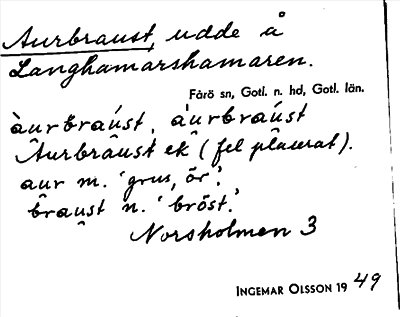 Aurbraust, udde å
Langhamarshamaren.
Fårö sn, Gotl. n. hd, Gotl. län.
àurbraúst, áurbraúst
Aurbraust ek (fel placerat).
aur m. 'grus, ör'.
braust n. 'bröst.'
Norsholmen 3
INGEMAR OLSSON 19 49